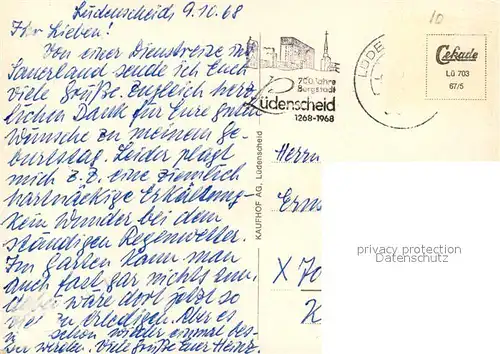 Lüdenscheid, 9.10.68
Ihr Lieben!
Von einer Dienstreise ins
Sauerland sende ich Euch
viele Grüße. Zugleich herz-
lichen Dank für Eure guten
Wünsche zu meinem Ge-
burtstag. Leider plagt
mich z. Z. eine ziemlich
hartnäckige Erkältung.
Kein Wunder bei dem
ständigen Regenwetter.
Im Garten kann man
auch fast gar nichts tun,
wäre dort jetzt so
viel zu erledigen. Aber es
schon wieder einmal bes-
ser werden. Viele Grüße Euer Heinz
700 Jahre
Bergstadt
Lüdenscheid
1268-1968
LÜDE
10
Cekade
LÜ 703
67/5
KAUFHOF AG, Lüdenscheid
Herrn
X 70
privacy protection
Datenschutz